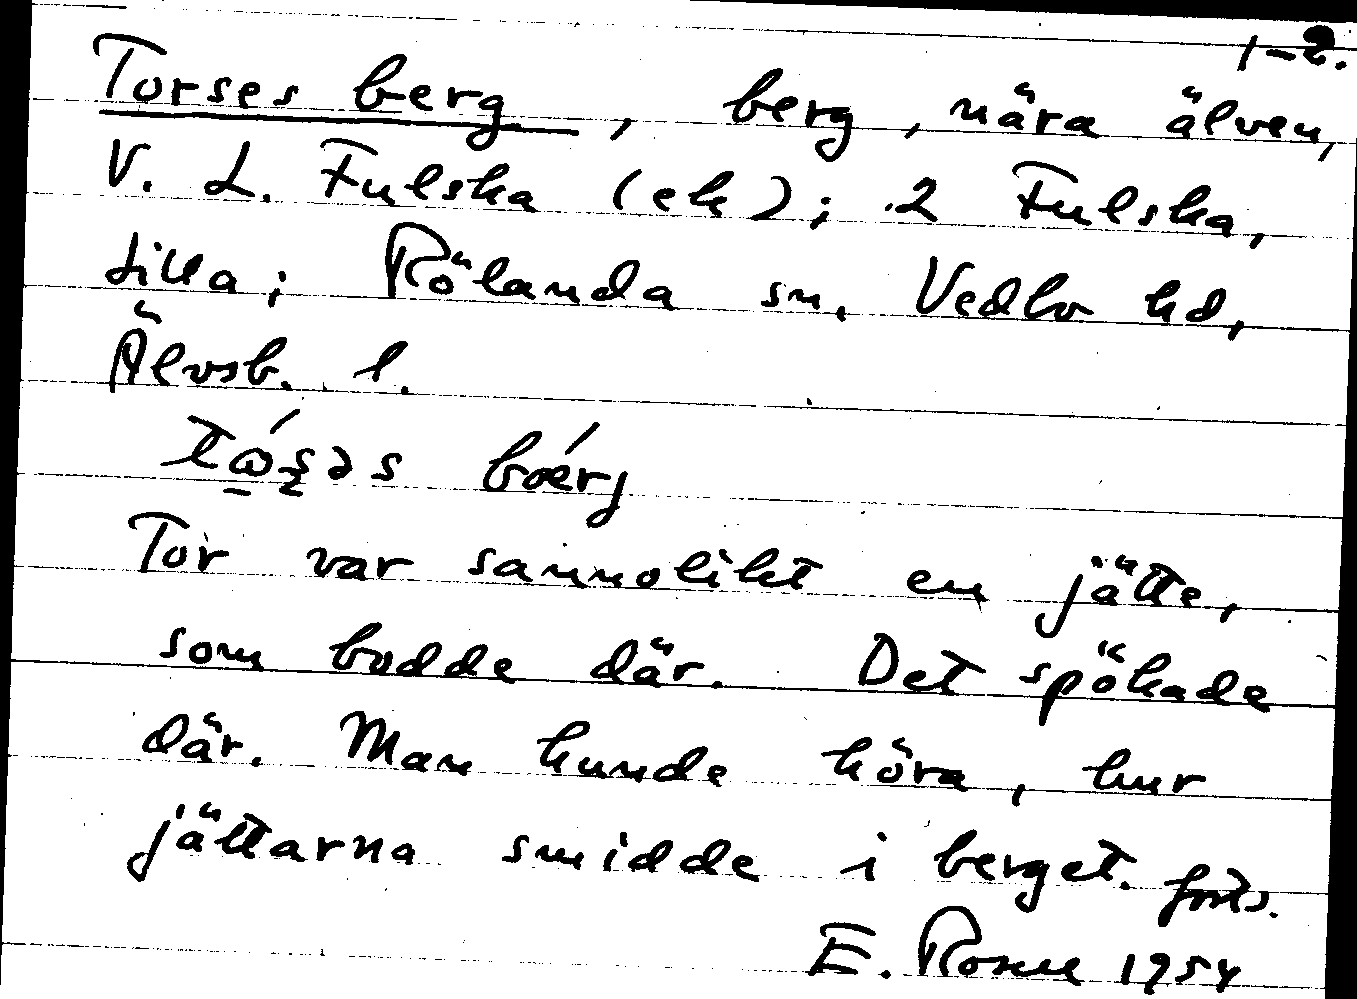 1-2.
Torses berg, berg, nära älven,
V. L. Fulska (ek); 2 Fulska,
lilla; Rölanda sn. Vedbo hd,
Älvsb. l.
bærj
Tor var sannolikt en jätte,
som bodde där. Det spökade
där. Man kunde höra, hur
jättarna smidde i berget. forts.
E. Rosell 1954